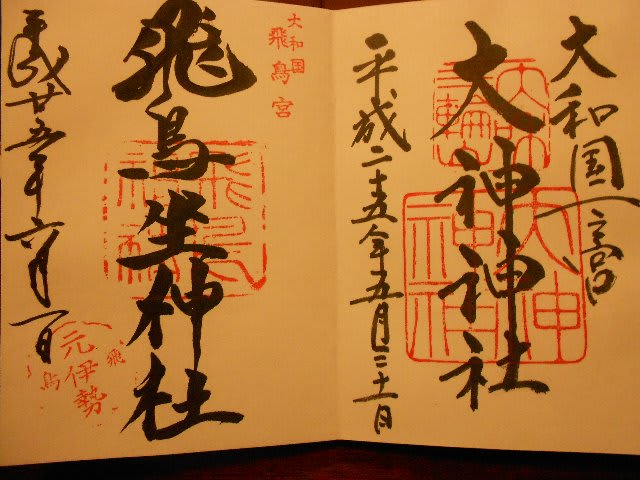 大和国一宮
大神神社
平成二十五年五月三十一日
大和国
飛鳥宮
飛鳥坐神社
平成廿五年六月一日
大神神社
飛鳥
元伊勢